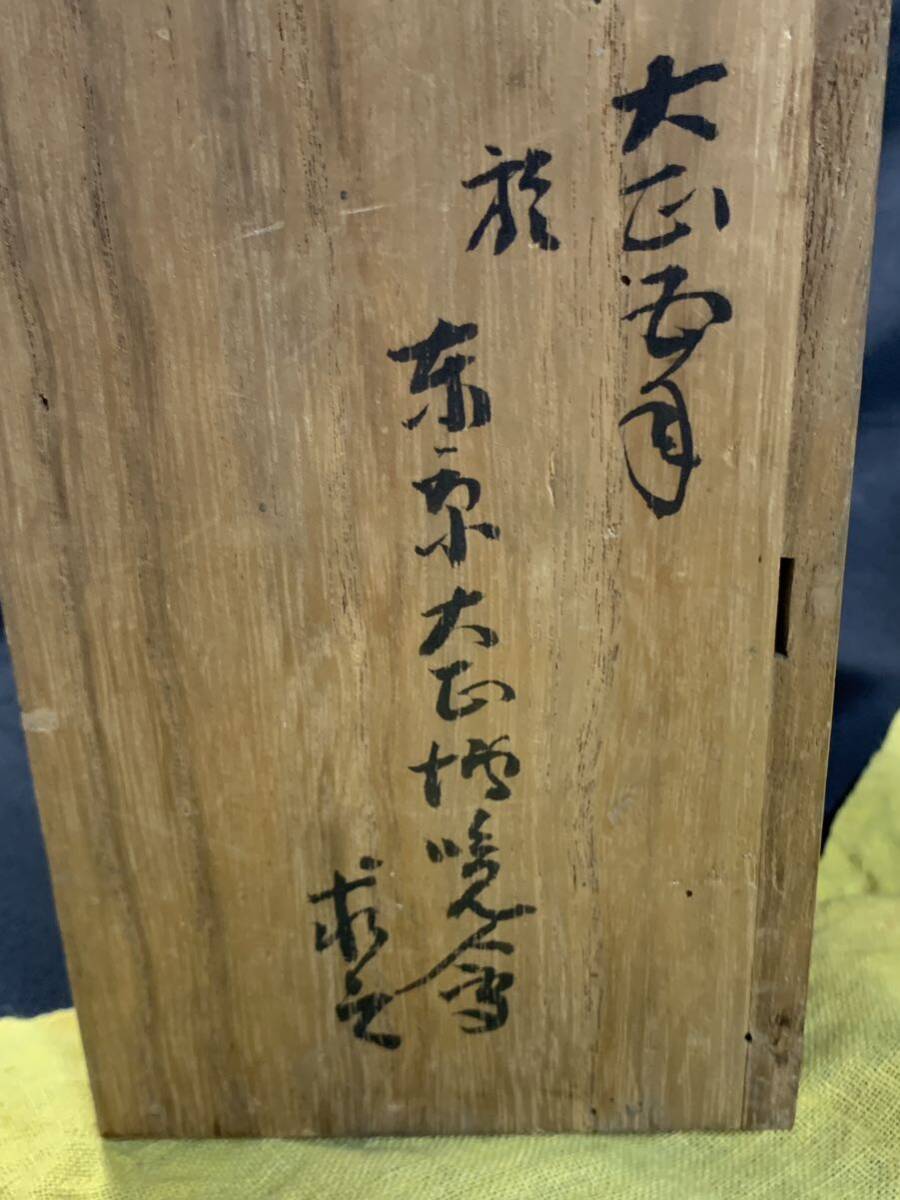 大正五月
於
東京大正博覧會
求之